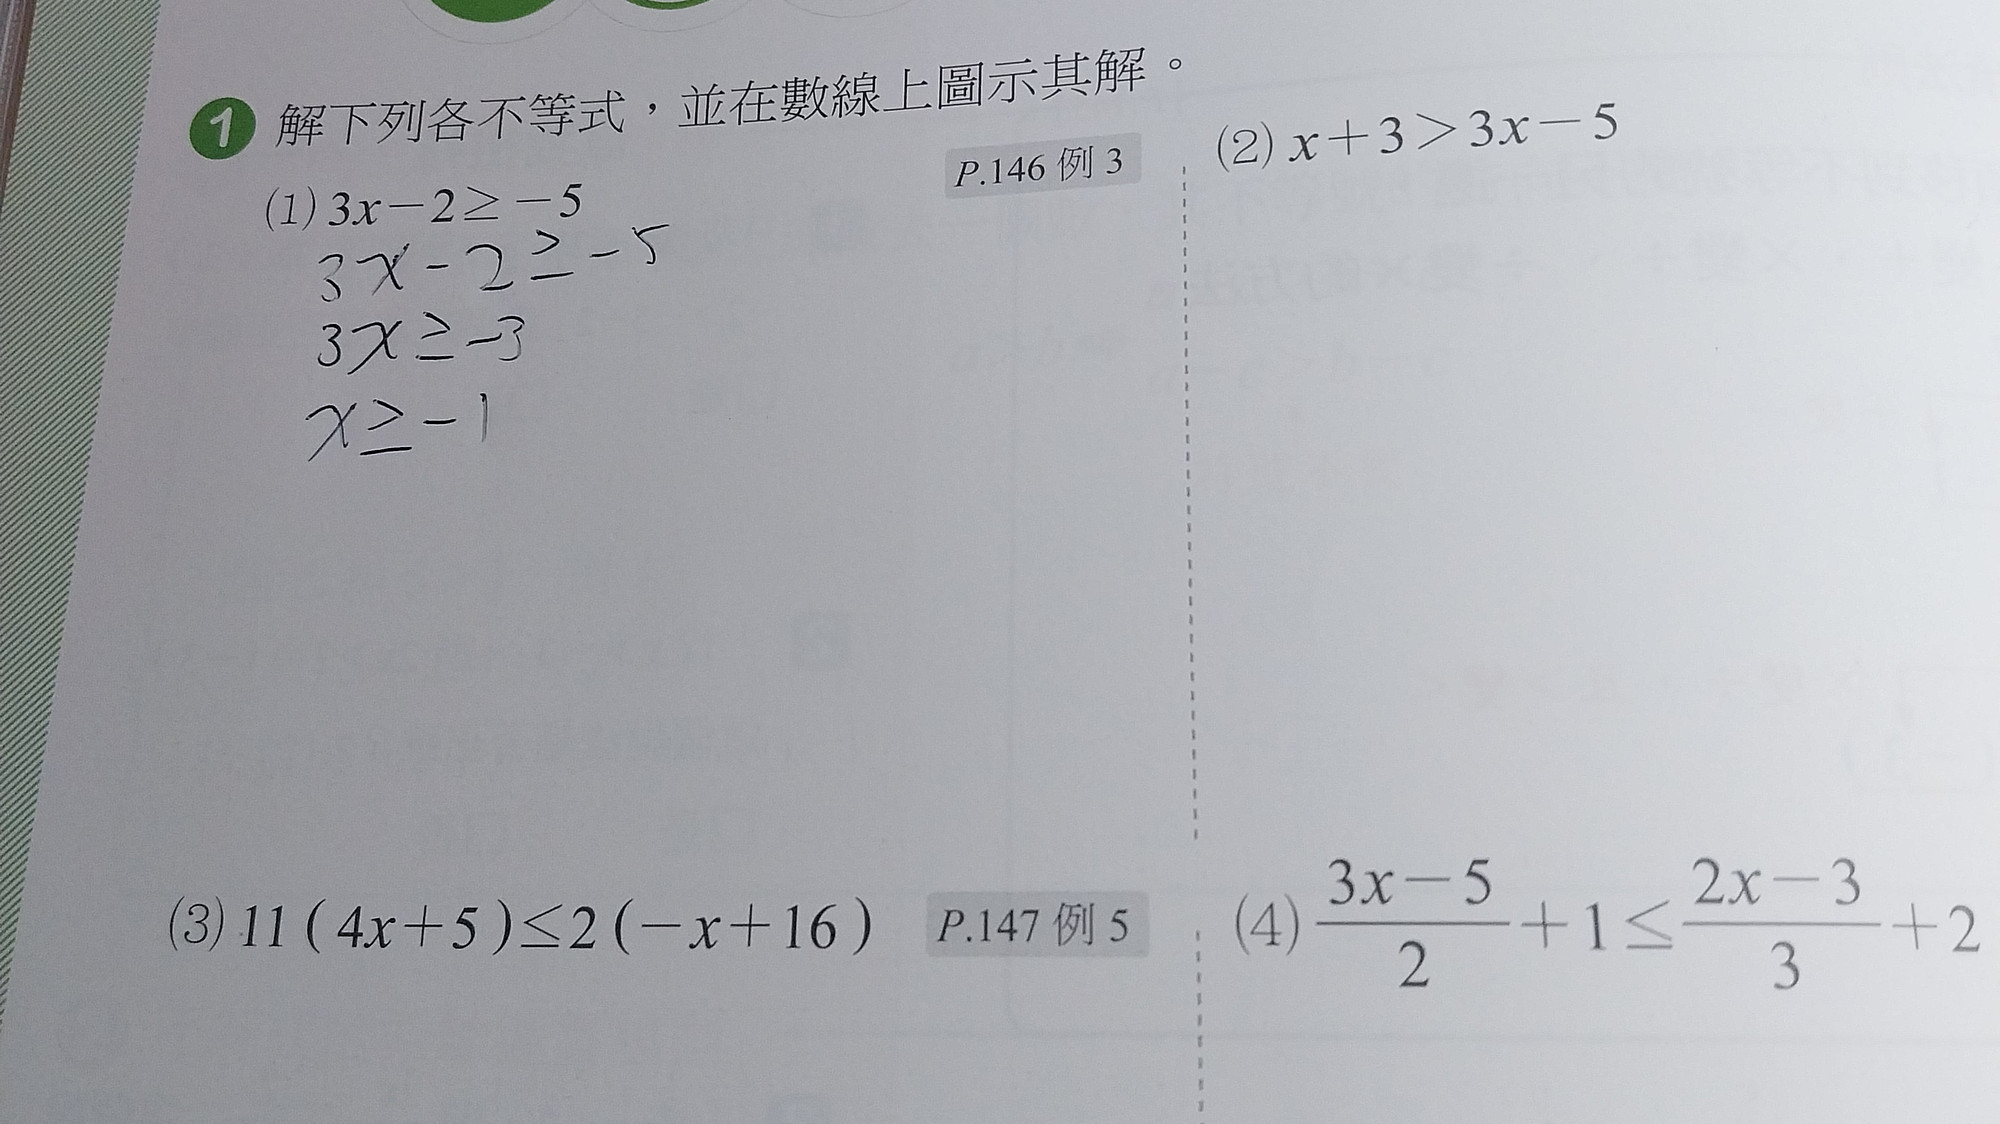 1 解下列各不等式，並在數線上圖示其解。
(1) 3x－2≥－5
P.146 例 3
3x-2≥-5
3x≥-3
x≥-1
(2) x＋3＞3x－5
(3) 11（4x＋5）≤2（－x＋16）
P.147 例 5
(4) \frac{3x－5}{2}＋1≤\frac{2x－3}{3}＋2